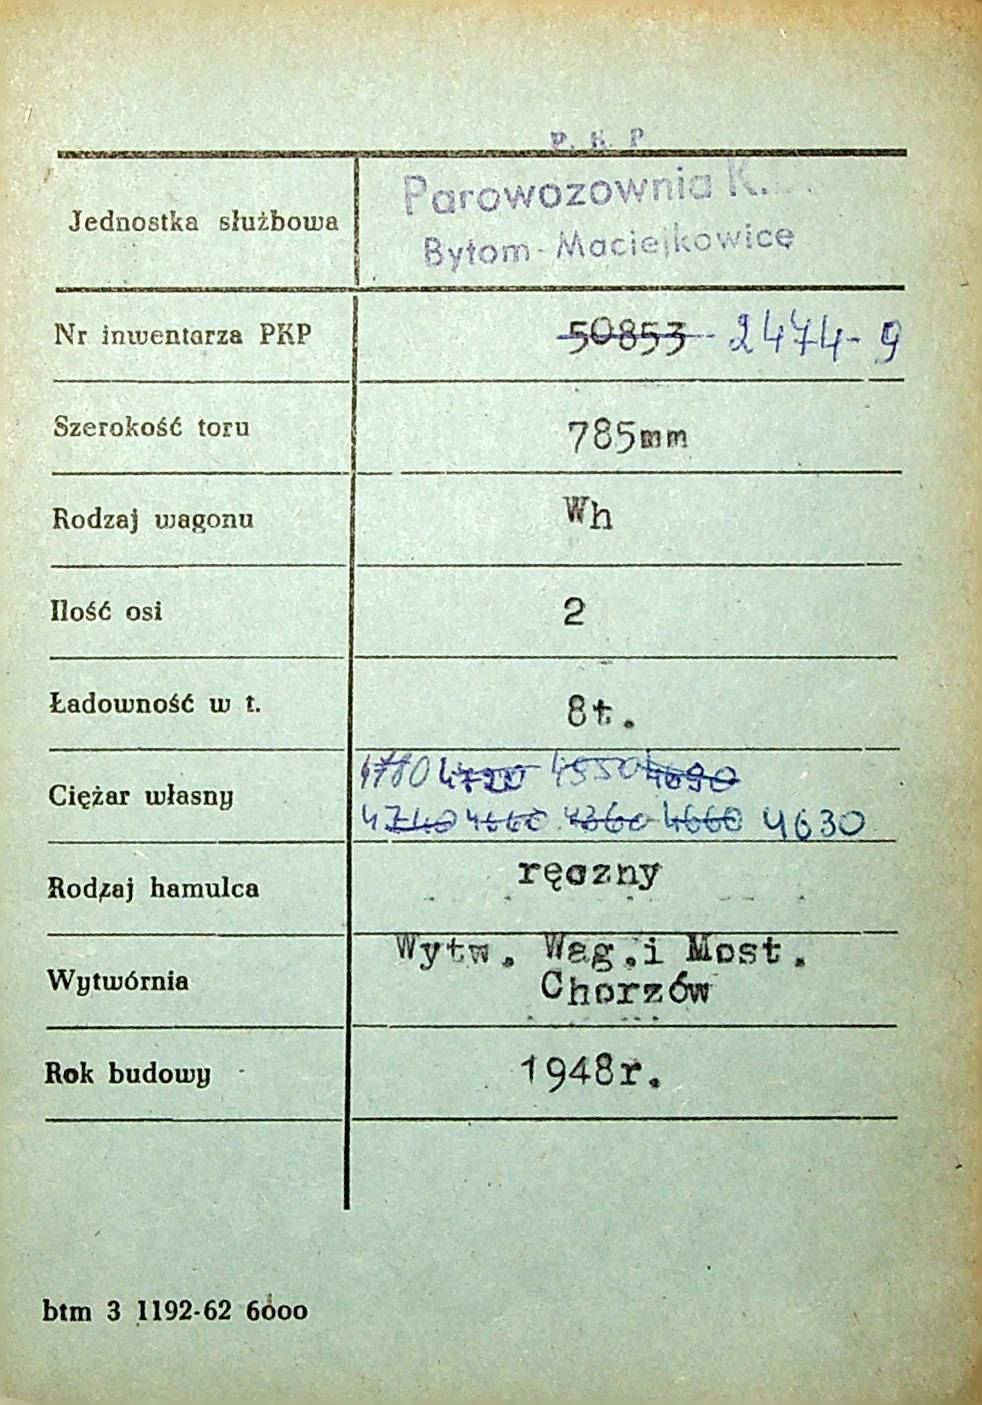 P. K. P
Parowozownia K.
Jednostka służbowa
Bytom-Maciejkowice
Nr inwentarza PKP 50853 - 2474-9
Szerokość toru 785mm
Rodzaj wagonu Wh
Ilość osi 2
Ładowność w t. 8t.
4780 4720 4550 4690
Ciężar własny
4740 4660 4360 4660 4630
Rodzaj hamulca ręczny
Wytw. Wag. i Most.
Wytwórnia
Chorzów
Rok budowy 1948r.
btm 3 1192-62 6000